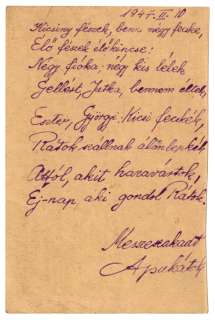 1945. II. 10
Kicsiny fészek, benn négy fecske,
Élő fészek élő kincse:
Négy fióka, négy kis lélek
Gellért, Jutka, bennem éltek,
Eszter, Györgyi: Kicsi fecskék,
Rátok szállnak álomlepkék
Attól, akit hazavártok,
Éj-nap, aki gondol Rátok.
Apukától